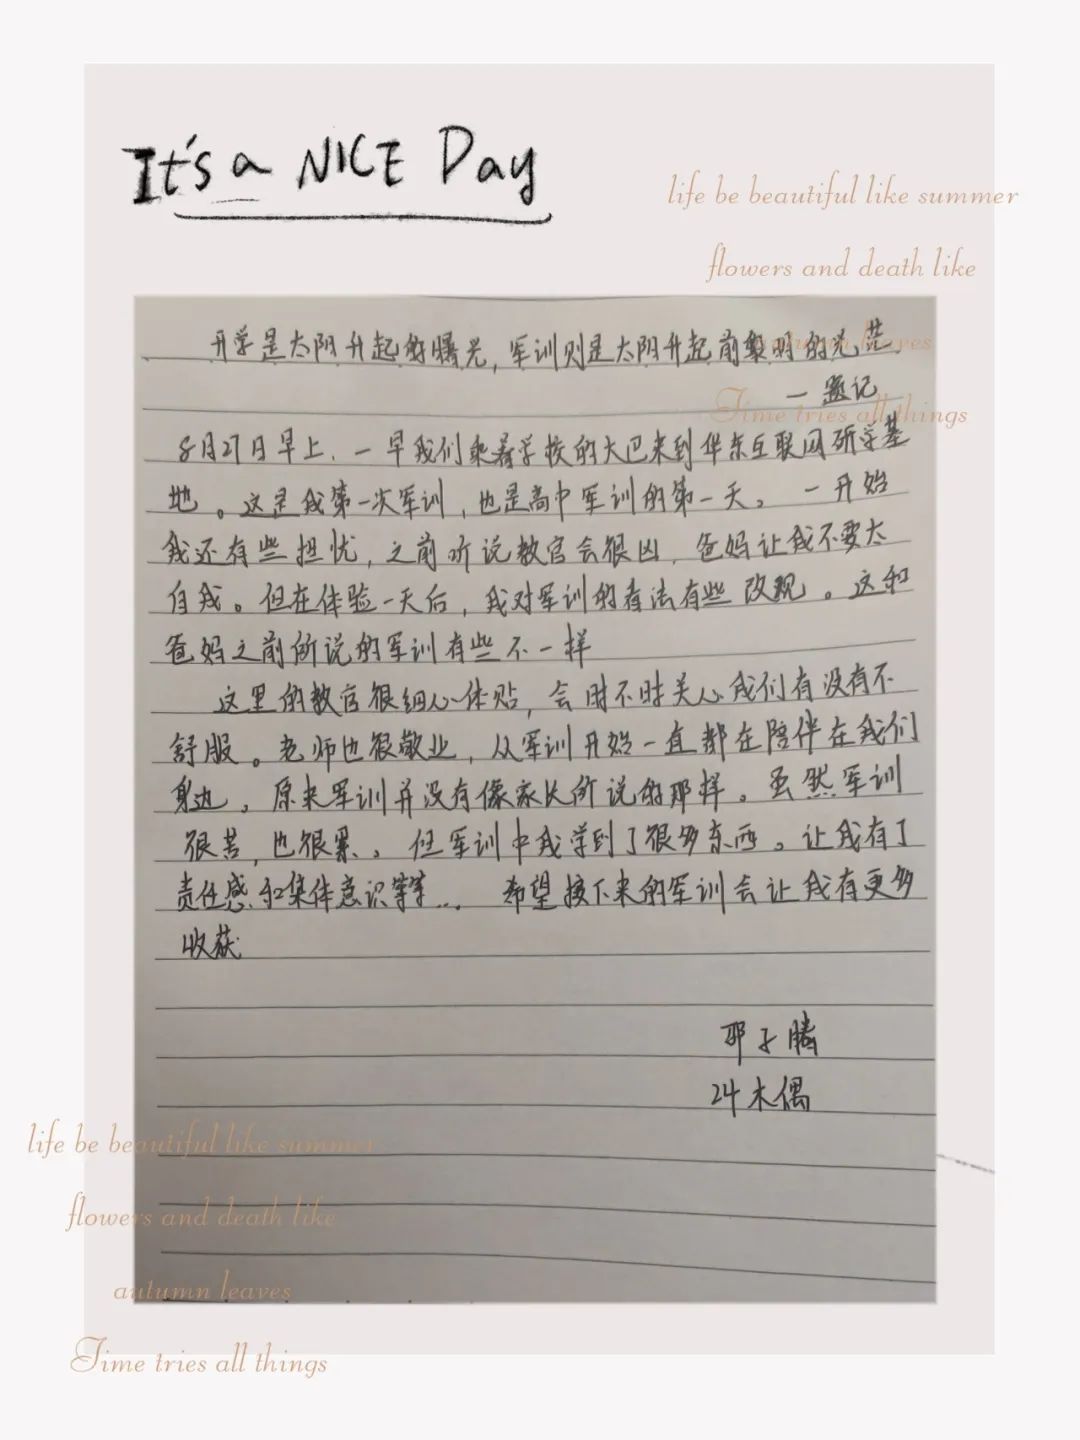 It's a NICE Day
life be beautiful like summer
flowers and death like
autumn leaves
Time tries all things
开学是太阳升起的曙光,军训则是太阳升起前黎明的光芒
一题记
8月27日早上,一早我们乘着学校的大巴来到华东互联网研学基
地。这是我第一次军训,也是高中军训的第一天。一开始
我还有些担忧,之前听说教官会很凶,爸妈让我不要太
自我。但在体验一天后,我对军训的看法有些改观。这和
爸妈之前所说的军训有些不一样
这里的教官很细心体贴,会时不时关心我们有没有不
舒服。老师也很敬业,从军训开始一直都在陪伴在我们
身边。原来军训并没有像家长所说的那样。虽然军训
很苦,也很累。但军训中我学到了很多东西。让我有了
责任感和集体意识等等... 希望接下来的军训会让我有更多
收获
邵子腾
24木偶
life be beautiful like summer
flowers and death like
autumn leaves
Time tries all things